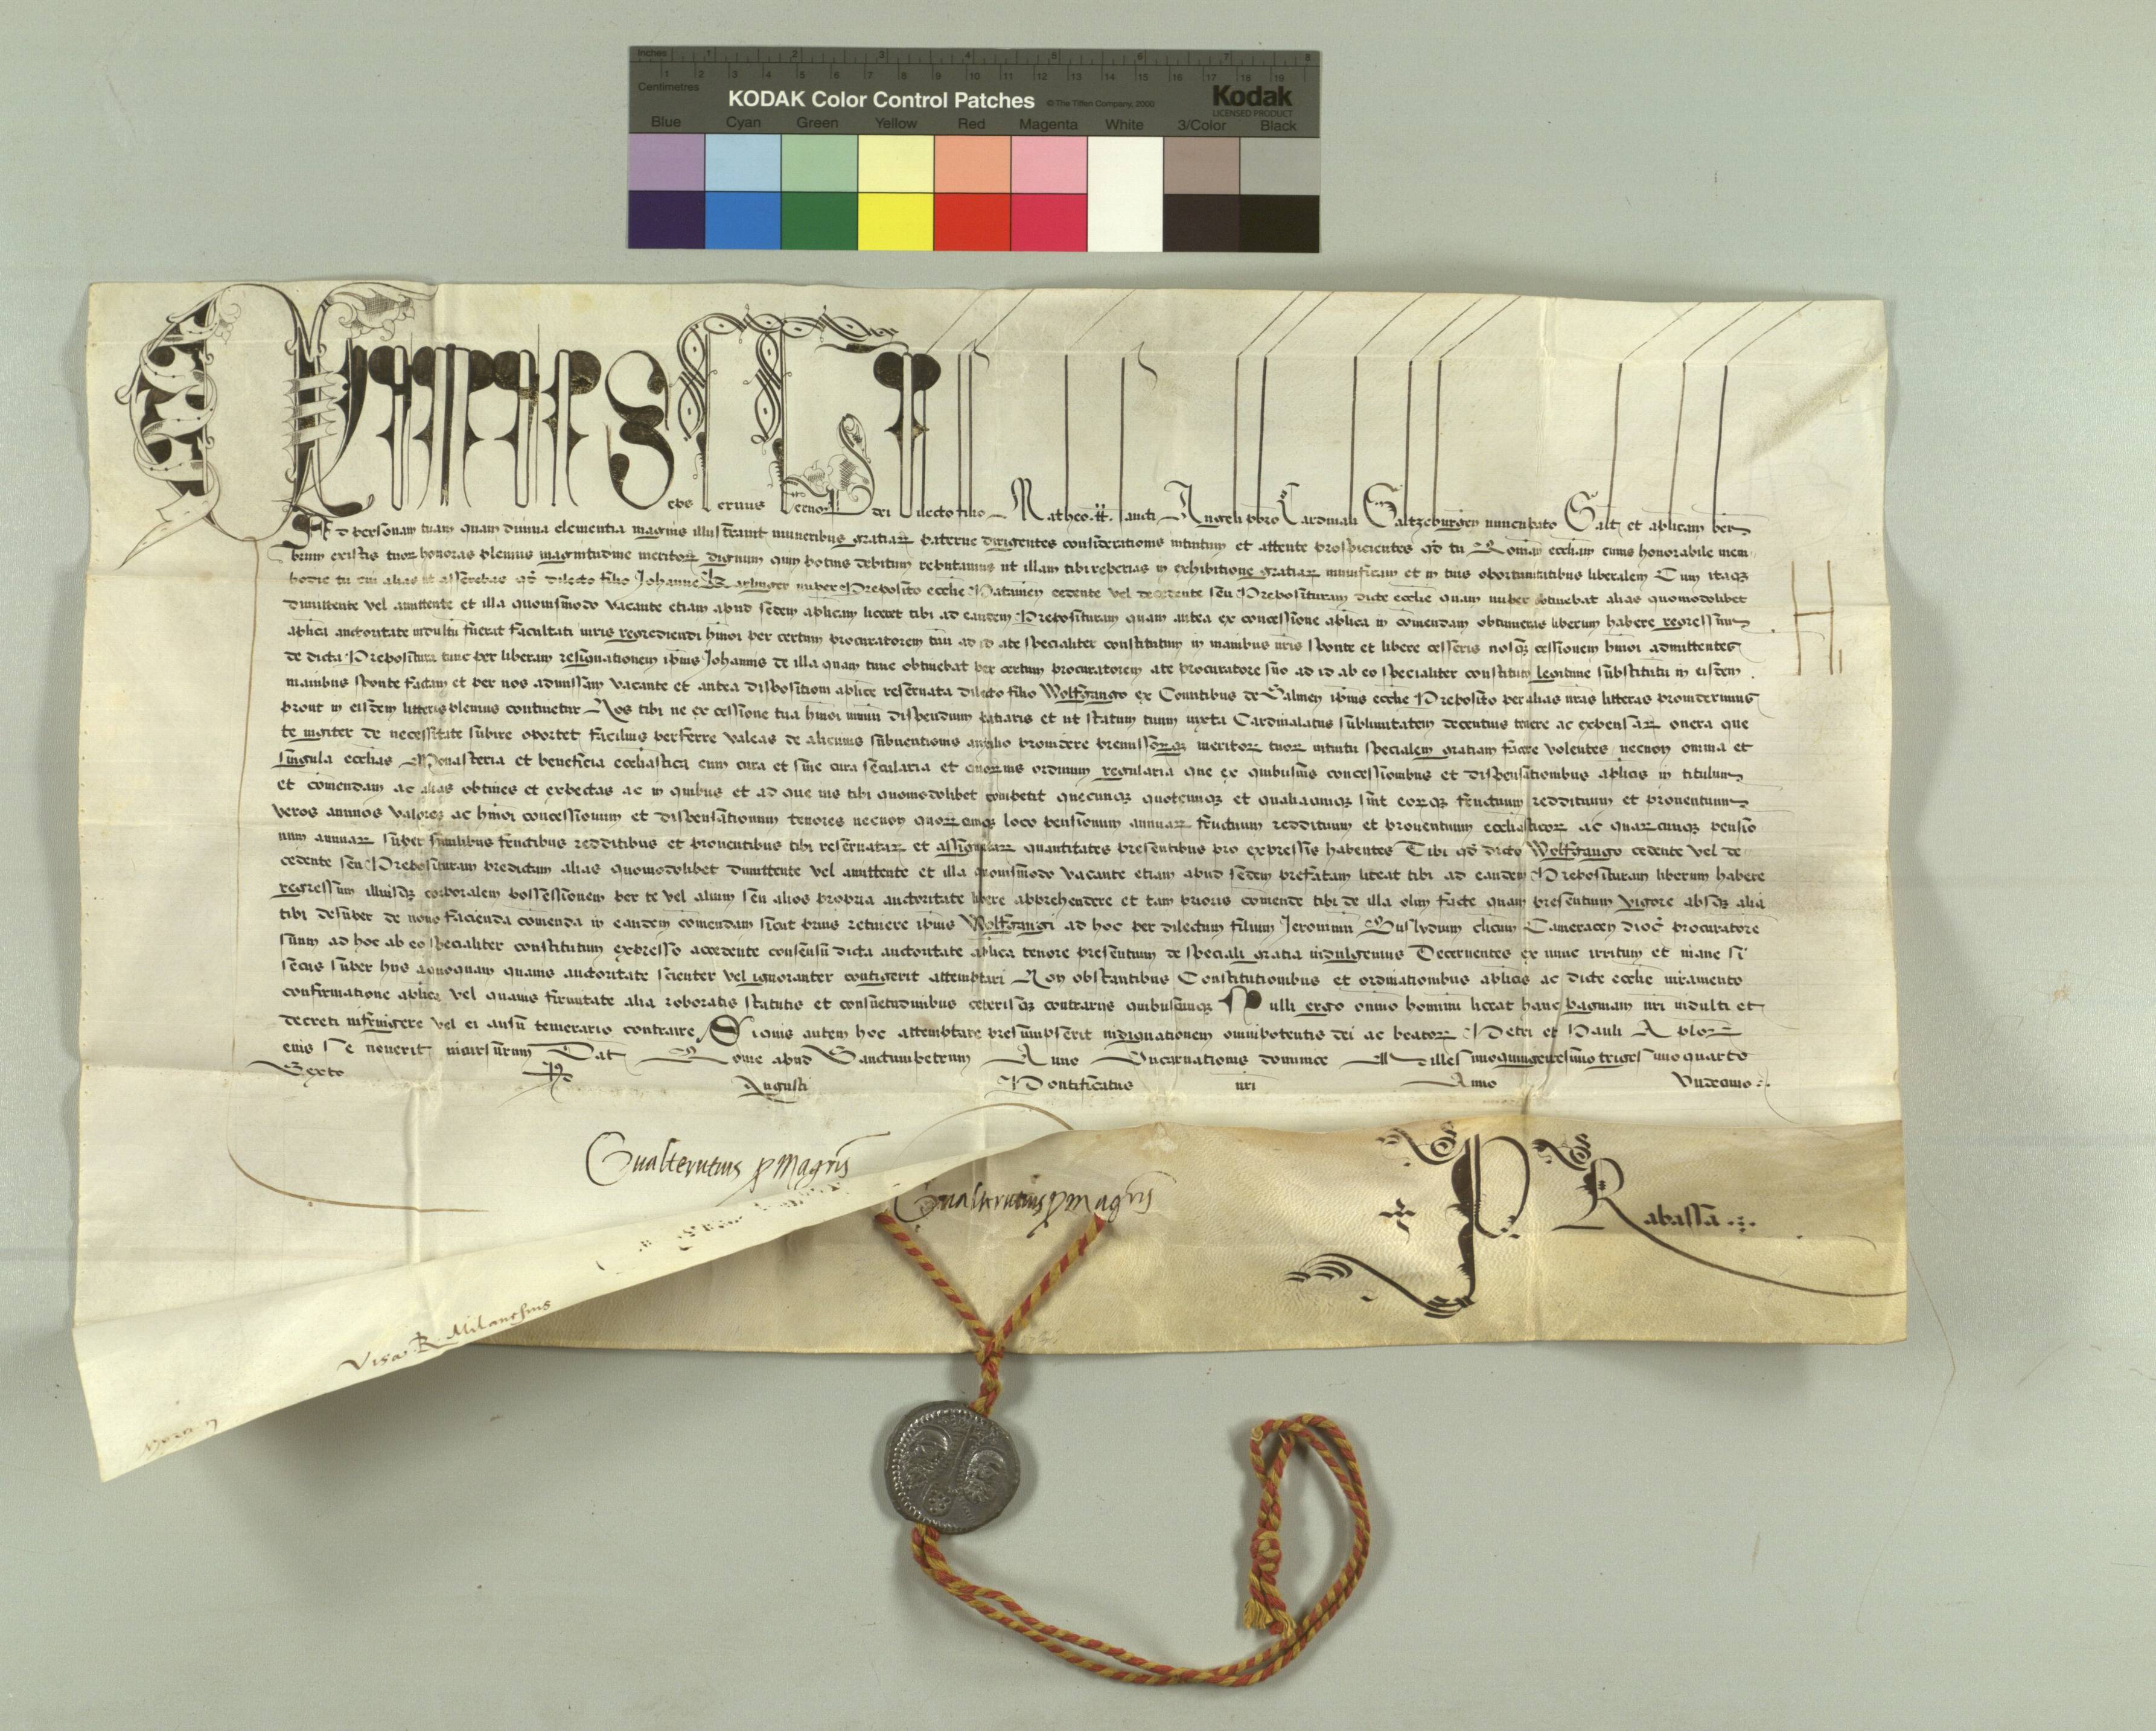 Inches 1 2 3 4 5 6 7 8
Centimetres 1 2 3 4 5 6 7 8 9 10 11 12 13 14 15 16 17 18 19
KODAK Color Control Patches © The Tiffen Company, 2000 Kodak
LICENSED PRODUCT
Blue Cyan Green Yellow Red Magenta White 3/Color Black
Clemens eps seruus seruorū dei Dilecto filio Matheo tt. sancti Angeli pbro Cardinali Saltzeburgeñ nuncupato Salt et aplicam beñ
Ad personam tuam quam diuina clementia magnis illustrauit muneribus gratiaꝝ paterne dirigentes considerationis intuitum et attente prospicientes qđ tu Romañ eccliam cuius honorabile mem
brum existis tuoꝝ honoras plenius magnitudine meritoꝝ dignum quin potius debitum reputamus ut illam tibi reperias in exhibitione gratiaꝝ munificam et in tuis oportunitatibus liberalem Cum itaqꝫ
hodie tu cui alias ut asserebas qđ dilecto filio Johanne nuper Preposito ecclie Patauieñ cedente vel decedente seu Preposituram dicte ecclie quam nuper obtinebat alias quomodolibet
dimittente vel amittente et illa quouismodo vacante etiam apud sedem aplicam liceret tibi ad eandem Preposituram quam antea ex concessione aplica in comendam obtinueras liberum habere regressum
aplica auctoritate indultū fuerat facultati iuris regrediendi hmoi per certum procuratorem tuū ad id a te specialiter constitutum in manibus nris sponte et libere cesseris nosqꝫ cessionem hmoi admittentes
de dicta Prepositura tunc per liberam resignationem ipius Johannis de illa quam tunc obtinebat per certum procuratorem a te procuratore suo ad id ab eo specialiter constituto legitime substitutū in eisdem
manibus sponte factam et per nos admissam vacante et antea dispositioni aplice reseruata dilecto filio Wolfgango ex Comitibus de Salmen ipius ecclie Preposito per alias nras litteras prouiderimus
prout in eisdem litteris plenius continetur Nos tibi ne ex cessione tua hmoi nimiū dispendium patiaris et ut statum tuum iuxta Cardinalatus sublimitatem decentius tenere ac expensaꝝ onera que
te iugiter de necessitate subire oportet facilius perferre valeas de alicuius subuentionis auxilio prouidere premissorumqꝫ meritoꝝ tuoꝝ intuitu specialem gratiam facere volentes necnon omnia et
singula ecclias Monasteria et beneficia ecclastica cum cura et sine cura secularia et quoruis ordinum regularia que ex quibusuis concessionibus et dispensationibus aplicis in titulum
et comendam ac alias obtines et expectas ac in quibus et ad que ius tibi quomodolibet competit quecunqꝫ quotcunqꝫ et qualiacunqꝫ sint eorūqꝫ fructuum reddituum et prouentuum
veros annuos valores ac hmoi concessionum et dispensationum tenores necnon quoꝝcunqꝫ loco pensionum annuaꝝ fructuum reddituum et prouentuum ecclasticoꝝ ac quaꝝcunqꝫ pensio
num annuaꝝ super similibus fructibus redditibus et prouentibus tibi reseruataꝝ et assignataꝝ quantitates presentibus pro expressis habentes Tibi qđ dicto Wolfgango cedente vel de
cedente seu Preposituram predictam alias quomodolibet dimittente vel amittente et illa quouismodo vacante etiam apud sedem prefatam liceat tibi ad eandem Preposituram liberum habere
regressum illiusqꝫ corporalem possessionem per te vel alium seu alios propria auctoritate libere apprehendere et tam prioris comende tibi de illa olim facte quam presentium vigore absqꝫ alia
tibi desuper de nouo facienda comenda in eandem comendam sicut prius retinere ipius Wolfgangi ad hoc per dilectum filium Jeronimū Buslydium clicum Cameraceñ dioc̄ procuratorē
suum ad hoc ab eo specialiter constitutum expresso accedente consensu dicta auctoritate aplica tenore presentium de speciali gratia indulgemus Decernentes ex nunc irritum et inane si
secus super hijs a quoquam quauis auctoritate scienter vel ignoranter contigerit attemptari Non obstantibus Constitutionibus et ordinationibus aplicis ac dicte ecclie iuramento
confirmatione aplica vel quauis firmitate alia roboratis statutis et consuetudinibus ceterisqꝫ contrarijs quibuscunqꝫ Nulli ergo omnino hominū liceat hanc paginam nri indulti et
decreti infringere vel ei ausu temerario contraire Siquis autem hoc attemptare presumpserit indignationem omnipotentis dei ac beatoꝝ Petri et Pauli Aploꝝ
eius se nouerit incursurum Dat Rome apud Sanctumpetrum Anno Incarnationis dominice Millesimoquingentesimotrigesimoquarto
Sexto Augusti Pontificatus nri Anno Undecimo
H
Gualterutius p Magris
Gualterutius p Magris
P Rabassa
Visa R. Milanesius